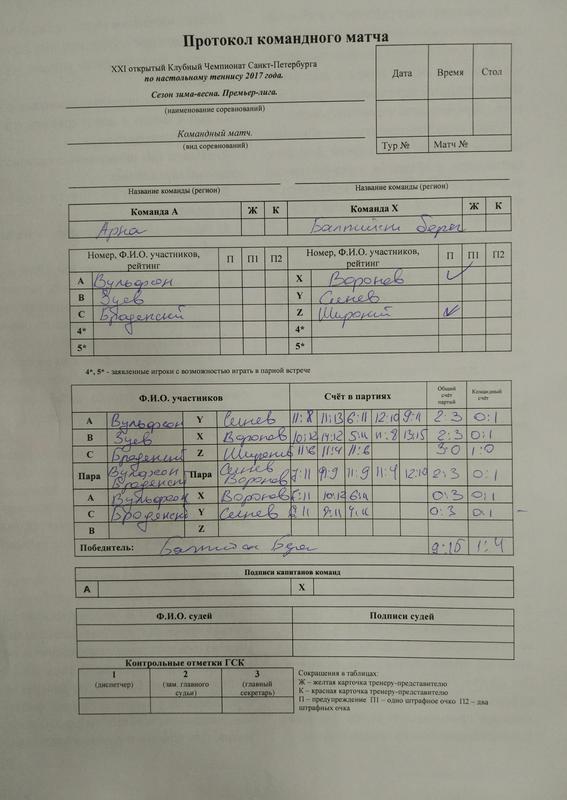 Протокол командного матча
XXI открытый Клубный Чемпионат Санкт-Петербурга
по настольному теннису 2017 года.
Сезон зима-весна. Премьер-лига.
(наименование соревнований)
Командный матч.
(вид соревнований)
Дата Время Стол
Тур № Матч №
Название команды (регион) Название команды (регион)
Команда А Ж К Команда X Ж К
Арна Балтийский берег
Номер, Ф.И.О. участников, рейтинг П П1 П2 Номер, Ф.И.О. участников, рейтинг П П1 П2
А Вульфсон X Воронов
В Зуев Y Синев
СБроденский Z Широкий
4* 4*
5* 5*
4*, 5* - заявленные игроки с возможностью играть в парной встрече
Ф.И.О. участников Счёт в партиях Общий счёт партий Командный счёт
А Вульфсон Y Синев 11:8 11:13 6:11 12:10 9:11 2:3 0:1
В Зуев X Воронов 10:12 14:12 5:11 11:8 13:15 2:3 0:1
С Броденский Z Широкий 11:6 11:4 11:6 3:0 1:0
Пара Вульфсон Броденский Пара Синев Воронов 11:9 11:4 2:3 0:1
А Вульфсон X Воронов 10:12 6:11 0:3 0:1
С Броденский Y Синев 9:11 0:3 0:1
В Z
Победитель: 9:15 1:4
Подписи капитанов команд
А X
Ф.И.О. судей Подписи судей
Контрольные отметки ГСК
1 2 3
(диспетчер) (зам. главного судьи) (главный секретарь)
Сокращения в таблицах:
Ж – желтая карточка тренеру-представителю
К – красная карточка тренеру-представителю
П – предупреждение П1 – одно штрафное очко П2 – два
штрафных очка